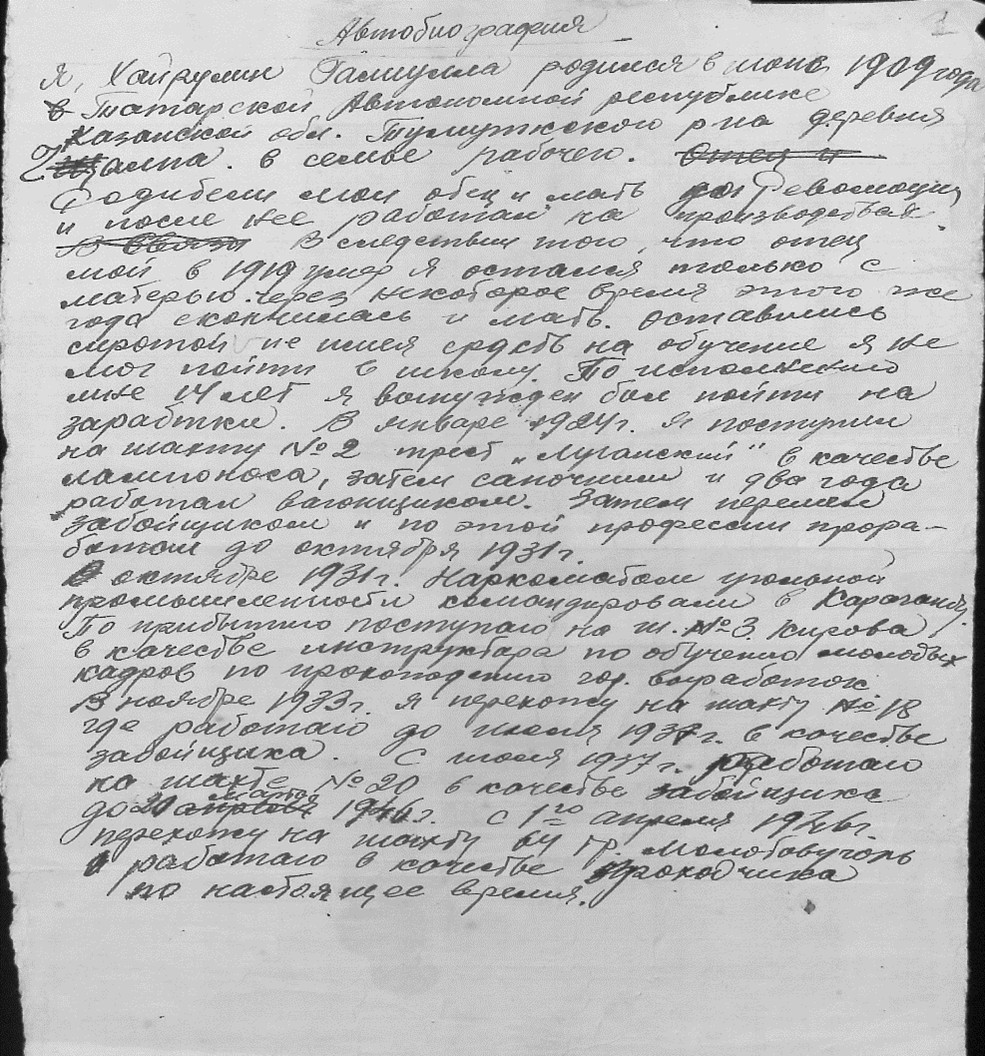 Автобиография
1
Я, Хайрулин Галиулла родился в июне 1909 года
в Татарской Автономной республике
Казанской обл. Тумутукского р-на деревня
в семье рабочего. Отец и
Родители мои отец и мать до Революции
и после нее работали на производствах
В связи В следствии того, что отец
мой в 1919 умер я остался только с
матерью. через некоторое время этого же
года скончилась и мать. Оставшись
сиротой не имея средств на обучение я не
мог пойти в школу. По исполнению
мне 14 лет я вынужден был пойти на
заработки. В январе 1924 г. я поступил
на шахту № 2 трест „Луганский" в качестве
лампоноса, затем саночником и два года
работал вагонщиком. Затем перешел
забойщиком и по этой профессии прора-
ботал до октября 1931 г.
В октябре 1931 г. Наркоматом угольной
промышленности командировали в Караганду.
По прибытию поступаю на ш. № 3 Кирова
в качестве инструктора по обучению молодых
кадров по прохождению гор. выработок
В ноябре 1933 г. я перехожу на шахту № 18
где работаю до июля 1937 г. в качестве
забойщика. С июля 1937 г. работаю
на шахте № 20 в качестве забойщика
марта
до 20 апреля 1946 г. с 1го апреля 1946 г.
перехожу на шахту бу тр. Молотовуголь
и работаю в качестве проходчика
по настоящее время.